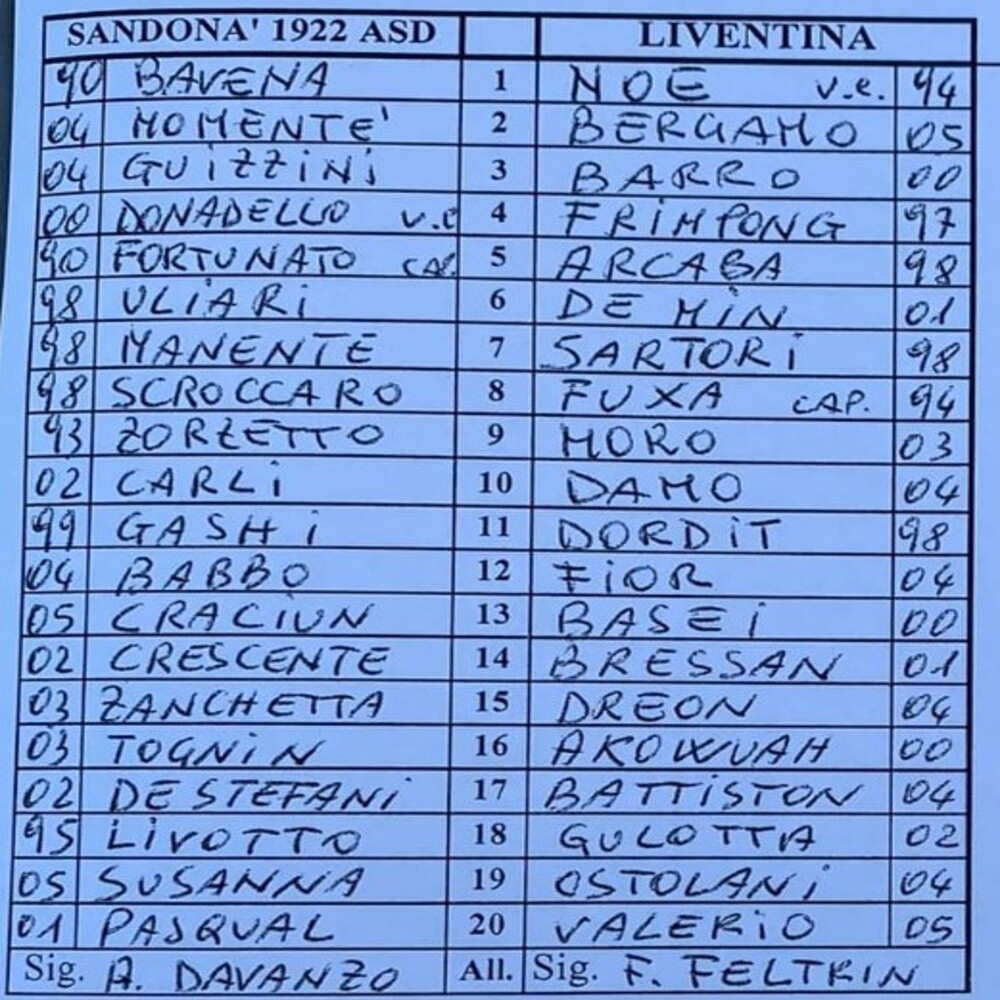 SANDONA' 1922 ASD LIVENTINA
90 BAVENA 1 NOE v.e. 94
04 MOMENTE' 2 BERGAMO 05
04 GUiZZiNi 3 BARRO 00
00 DONADELLO v.e 4 FRiMPONG 97
90 FORTUNATO CAP. 5 ARCABA 98
98 ULiARi 6 DE MiN 01
98 MANENTE 7 SARTORi 98
98 SCROCCARO 8 FUXA CAP. 94
93 ZORZETTO 9 MORO 03
02 CARLi 10 DAMO 04
99 GASHi 11 DORDiT 98
04 BABBO 12 FiOR 04
05 CRACiUN 13 BASEi 00
02 CRESCENTE 14 BRESSAN 01
03 ZANCHETTA 15 DREON 04
03 TOGNiN 16 AKOWUAH 00
02 DE STEFANi 17 BATTiSTON 04
95 LiVOTTO 18 GULOTTA 02
05 SUSANNA 19 OSTOLANi 04
01 PASQUAL 20 VALERiO 05
Sig. A. DAVANZO All. Sig. F. FELTRiN